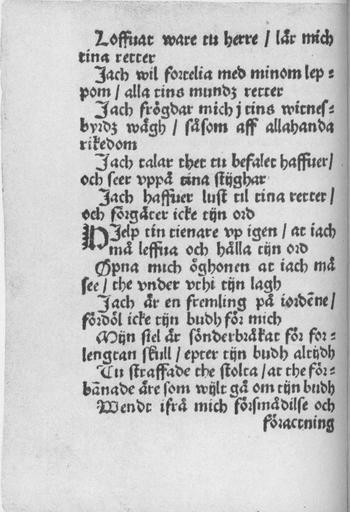 Loffuat ware tu herre / lär mich
tina retter
Jach wil fortelia med minom lep⸗
pom / alla tins mundz retter
Jach frögdar mich j tins witnes⸗
byrdz wägh / såsom aff allahanda
rikedom
Jach talar thet tu befalet haffuer/
och seer vppå tina stijghar
Jach haffuer lust til tina retter/
och förgäter icke tijn ord
HJelp tin tienare vp igen / at iach
må leffua och hålla tijn ord
Öpna mich öghonen at iach må
see / the vnder vthi tijn lagh
Jach är en fremling på iordēne/
fördöl icke tijn budh för mich
Mijn siel är sönderbråkat för for⸗
lengtan skull / epter tijn budh altijdh
Tu straffade the stolta / at the för⸗
bānade äre som wijlt gå om tijn budh
Wendt ifrå mich försmädilse och
föractning